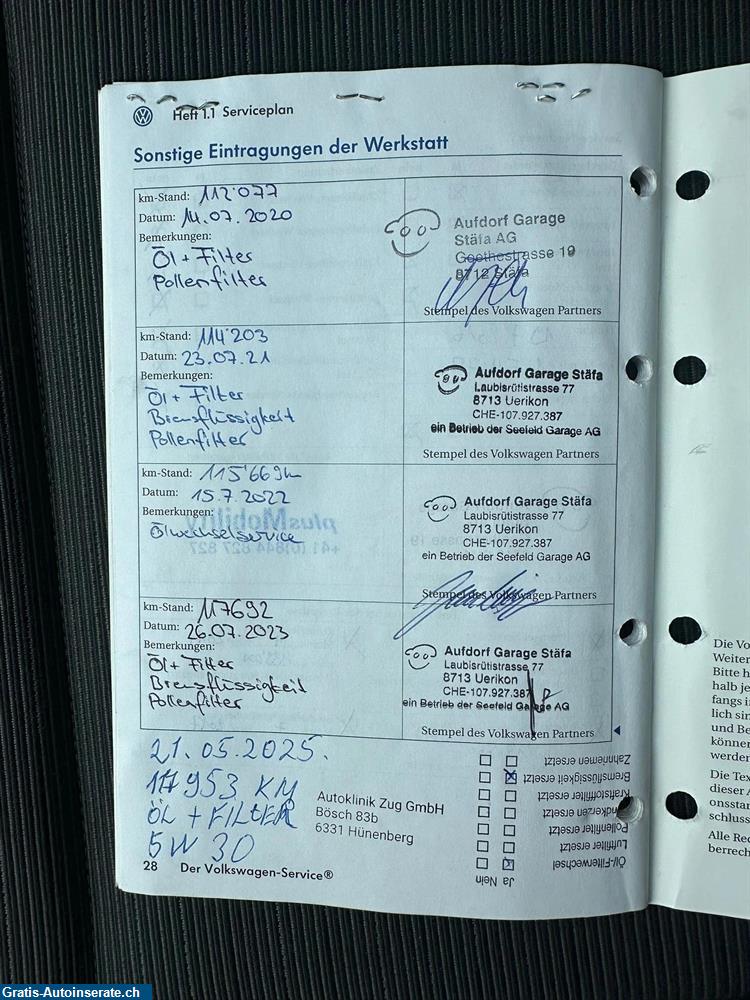 Heft 1.1 Serviceplan
Sonstige Eintragungen der Werkstatt
km-Stand: 112'077
Datum: 14.07.2020
Bemerkungen:
Öl + Filter
Pollenfilter
Aufdorf Garage
Stäfa AG
Goethestrasse 19
8712 Stäfa
Stempel des Volkswagen Partners
km-Stand: 114'203
Datum: 23.07.21
Bemerkungen:
Öl + Filter
Bremsflüssigkeit
Pollenfilter
Aufdorf Garage Stäfa
Laubisrütistrasse 77
8713 Uerikon
CHE-107.927.387
ein Betrieb der Seefeld Garage AG
Stempel des Volkswagen Partners
km-Stand: 115'669
Datum: 15.7.2022
Bemerkungen:
Ölwechselservice
plusMobility
Aufdorf Garage Stäfa
Laubisrütistrasse 77
8713 Uerikon
CHE-107.927.387
ein Betrieb der Seefeld Garage AG
Stempel des Volkswagen Partners
km-Stand: 117692
Datum: 26.07.2023
Bemerkungen:
Öl + Filter
Bremsflüssigkeit
Pollenfilter
Aufdorf Garage Stäfa
Laubisrütistrasse 77
8713 Uerikon
CHE-107.927.387
ein Betrieb der Seefeld Garage AG
Stempel des Volkswagen Partners
21.05.2025.
KM
ÖL + FILTER
5W30
Autoklinik Zug GmbH
Bösch 83b
6331 Hünenberg
Ja Nein
Öl-Filterwechsel
Luftfilter ersetzt
Pollenfilter ersetzt
ersetzt
Kraftstofffilter ersetzt
Bremsflüssigkeit ersetzt
Zahnriemen ersetzt
28 Der Volkswagen-Service®
Die Vo
Weiter
Bitte h
halb je
fangs i
lich sin
und Be
können
werden
Die Tex
dieser A
onsstan
schluss
Alle Rec
berrech
Gratis-Autoinserate.ch